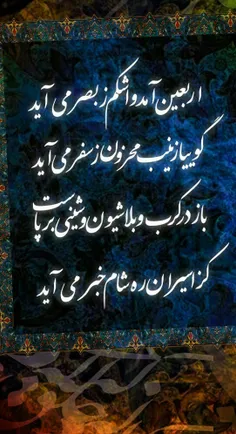 اربعین آمد و اشکم ز بصر می آید
گوییا زینب محزون ز سفر می آید
باز در کرب و بلا شیون و شینی برپاست
کز اسیران ره شام خبر می آید